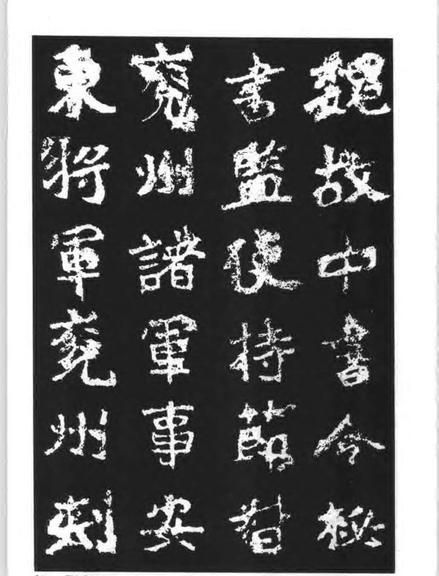 魏故中書令秘
書監使持節督
兖州諸軍事安
東將軍兖州刺